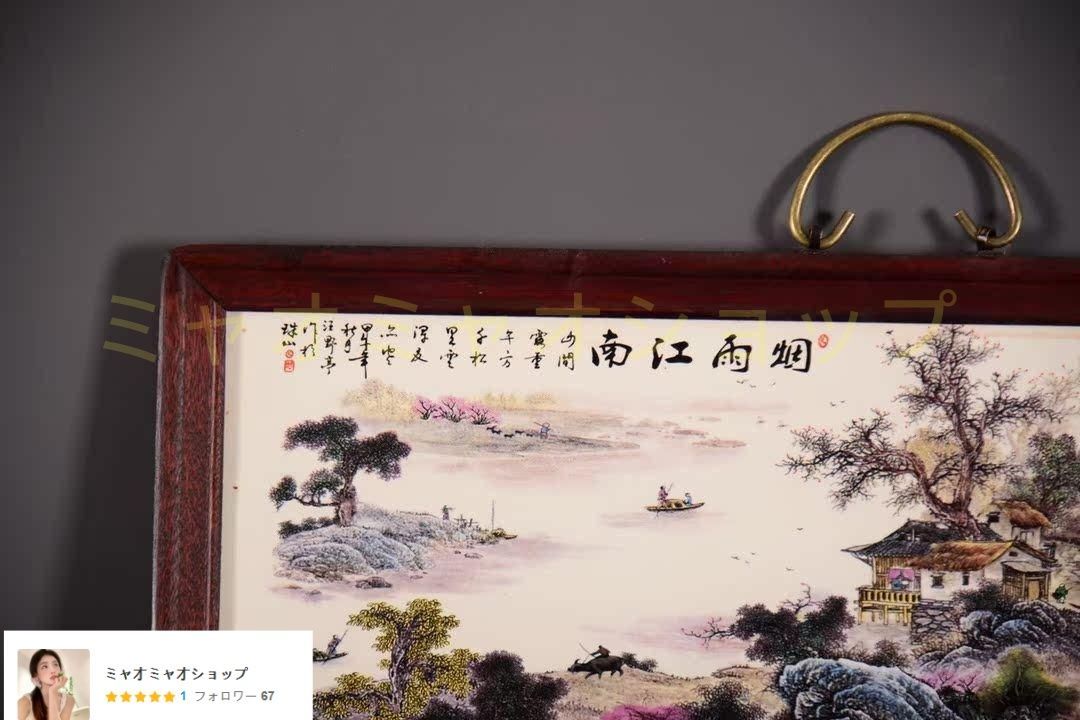 烟雨江南
山間
霞重
午方
千松
里雲
深及
三
甲年
秋月
汪野亭
作於
珠山
ミャオミャオショップ
ミャオミャオショップ
1 フォロワー 67